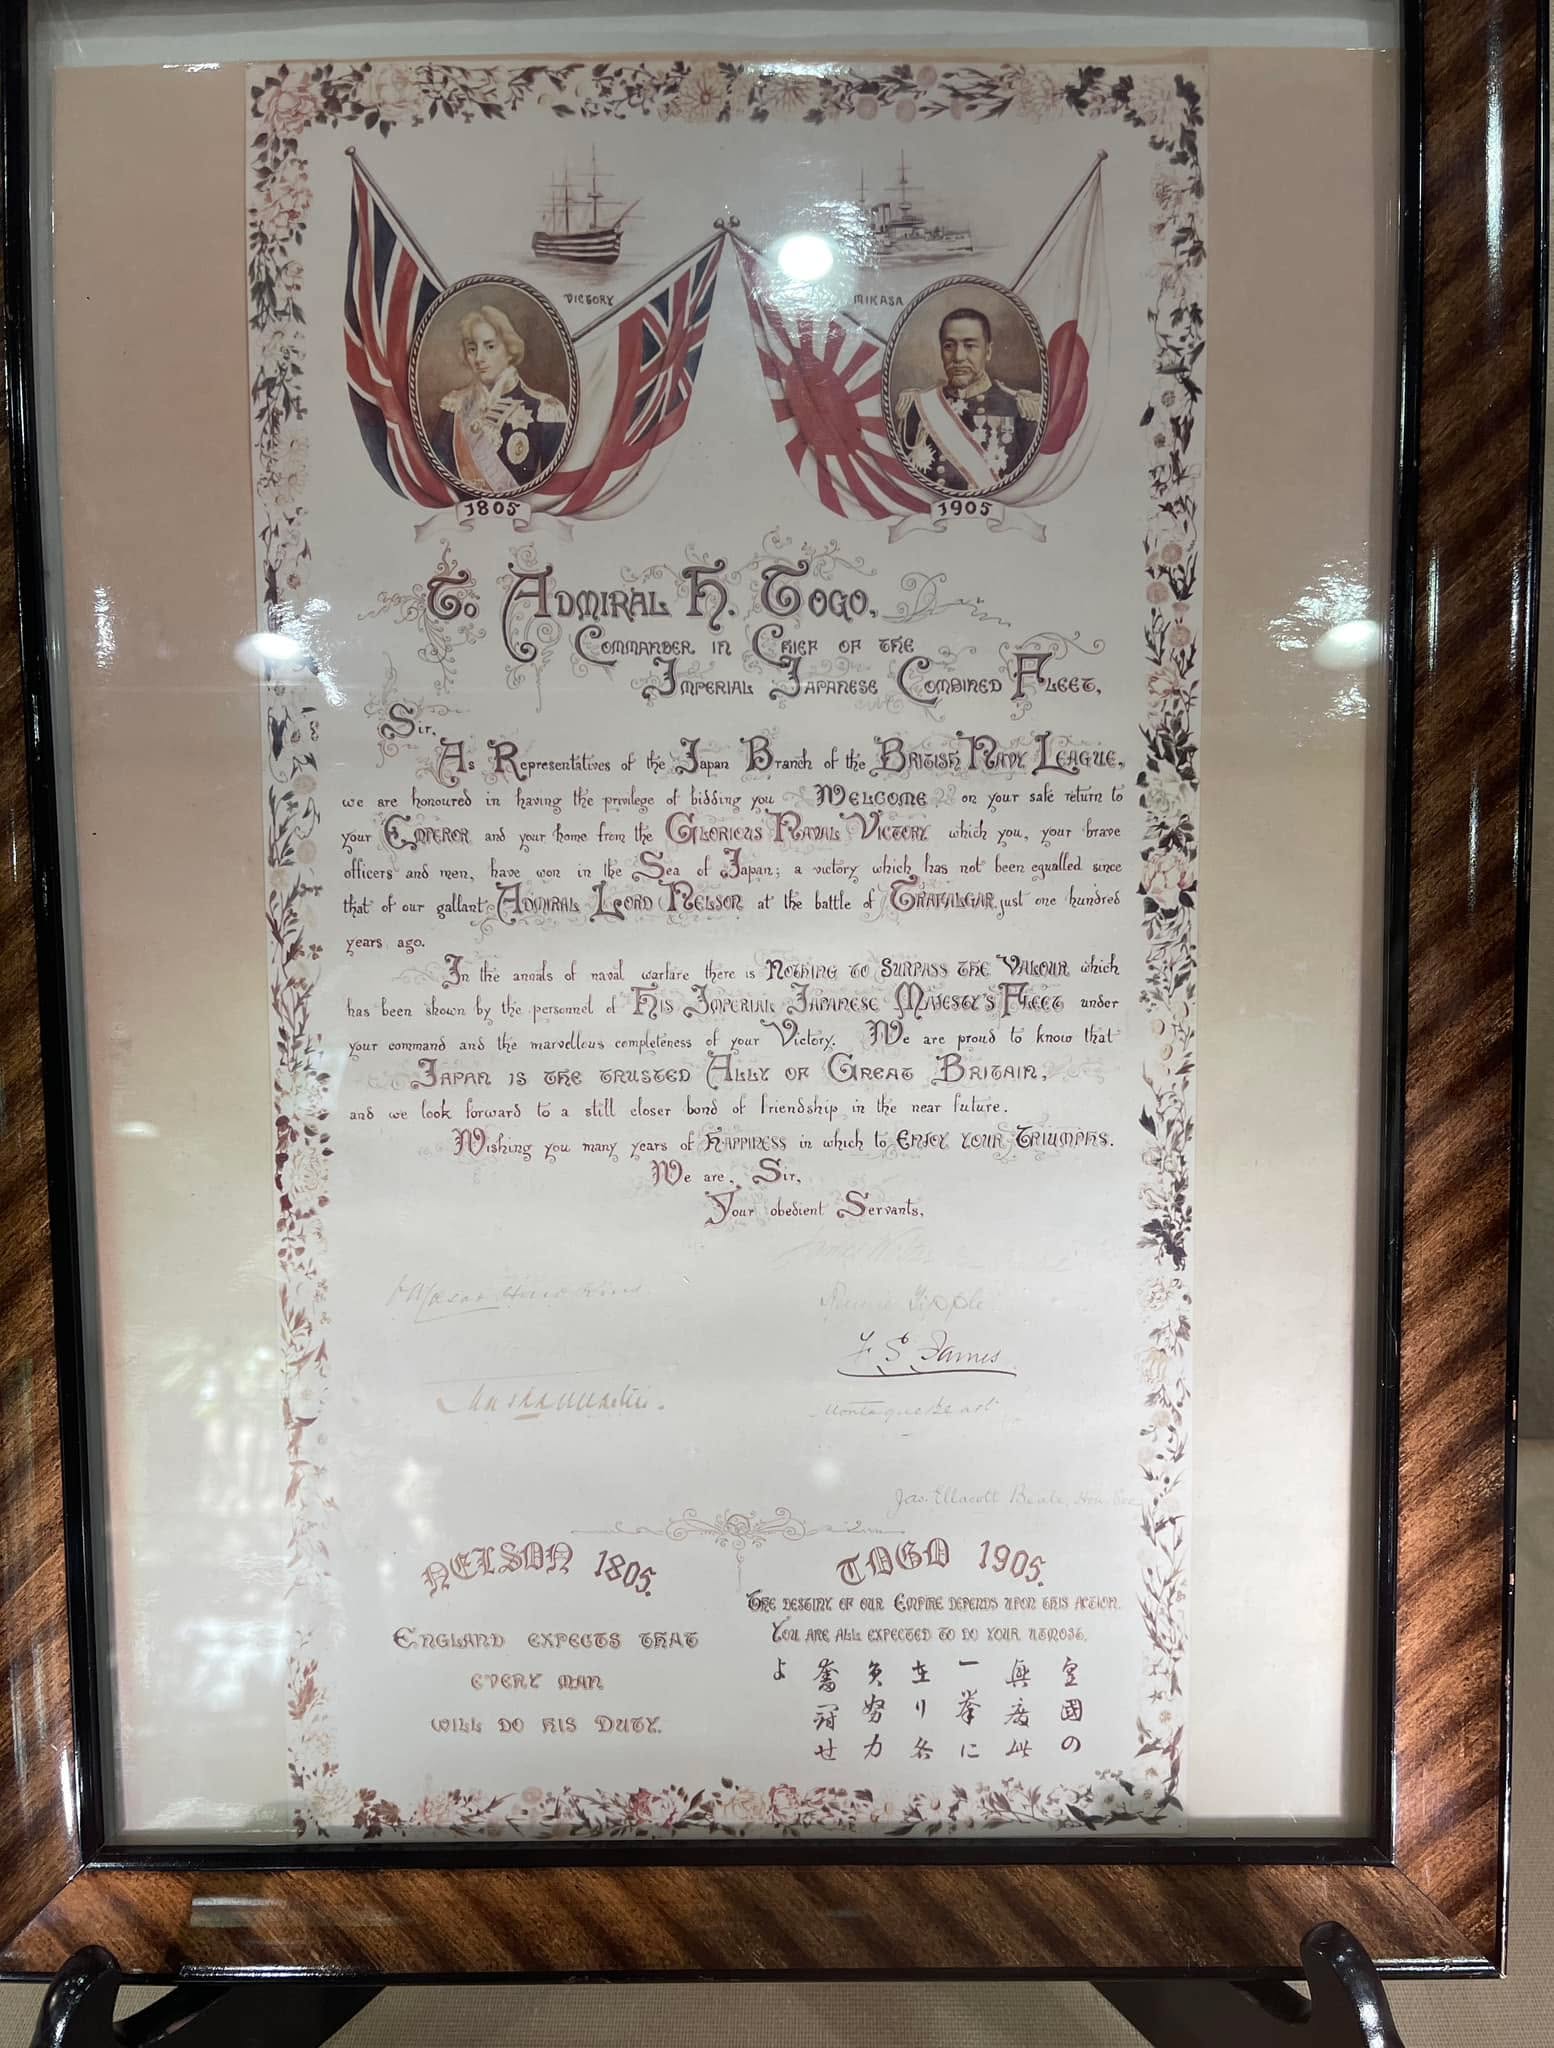 VICTORY
MIKASA
1805
1905
To Admiral H. Togo,
Commander in Chief of the
Imperial Japanese Combined Fleet,
Sir,
As Representatives of the Japan Branch of the British Navy League,
we are honoured in having the privilege of bidding you WELCOME on your safe return to
your Emperor and your home from the Glorious Naval Victory which you, your brave
officers and men, have won in the Sea of Japan; a victory which has not been equalled since
that of our gallant Admiral Lord Nelson at the battle of Trafalgar just one hundred
years ago.
In the annals of naval warfare there is Nothing to surpass the Valour which
has been shown by the personnel of His Imperial Japanese Majesty's Fleet under
your command and the marvellous completeness of your Victory. We are proud to know that
Japan is the trusted Ally of Great Britain,
and we look forward to a still closer bond of friendship in the near future.
Wishing you many years of Happiness in which to Enjoy your Triumphs.
We are, Sir,
Your obedient Servants,
F. S. James
Jas. Ellacott Beale, Hon. Sec
NELSON 1805.
England expects that
every man
will do his Duty.
TOGO 1905.
The destiny of our Empire depends upon this action.
You are all expected to do your utmost.
皇國の
興廢此
一挙に
在り各
員努力
奮励せ
よ